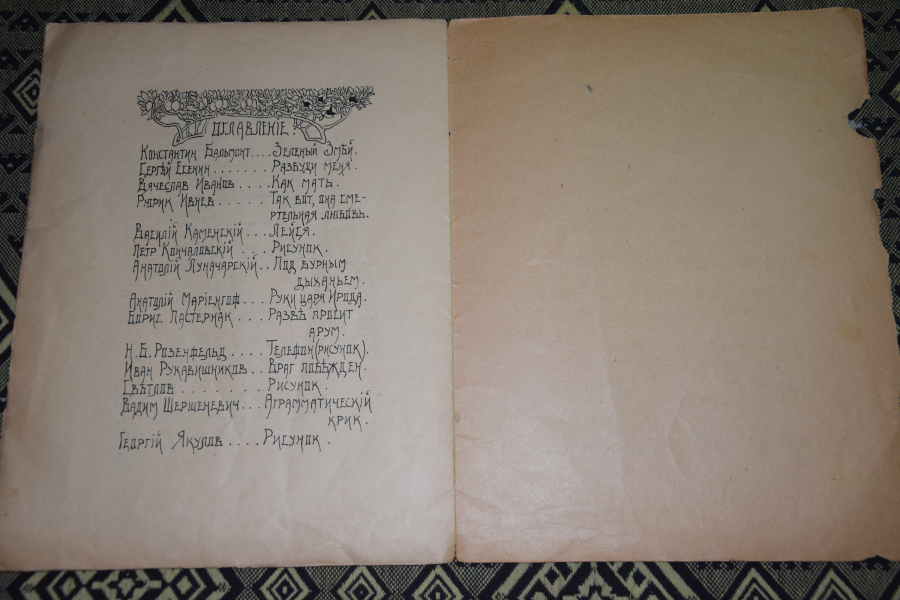 ОГЛАВЛЕНІЕ:
Константин Бальмонт.... Зеленый Змѣй.
Сергѣй Есенин....... Разбуди меня.
Вячеслав Иванов.... Как мать.
Рюрик Ивнев..... Так вот, она сме-
ртельная любовь.
Василій Каменскій... Лейся.
Петр Кончаловскій.... Рисунок.
Анатолій Луначарскій.. Под бурным
дыханьем.
Анатолій Маріенгоф... Руки царя Ирода.
Борис Пастернак.... Развѣ просит
арум.
Н.Б. Розенфельд.... Телефон (рисунок).
Иван Рукавишников.. Враг побѣжден.
Свѣтлов........ Рисунок.
Вадим Шершеневич... Аграмматическій
крик.
Георгій Якулов.... Рисунок.